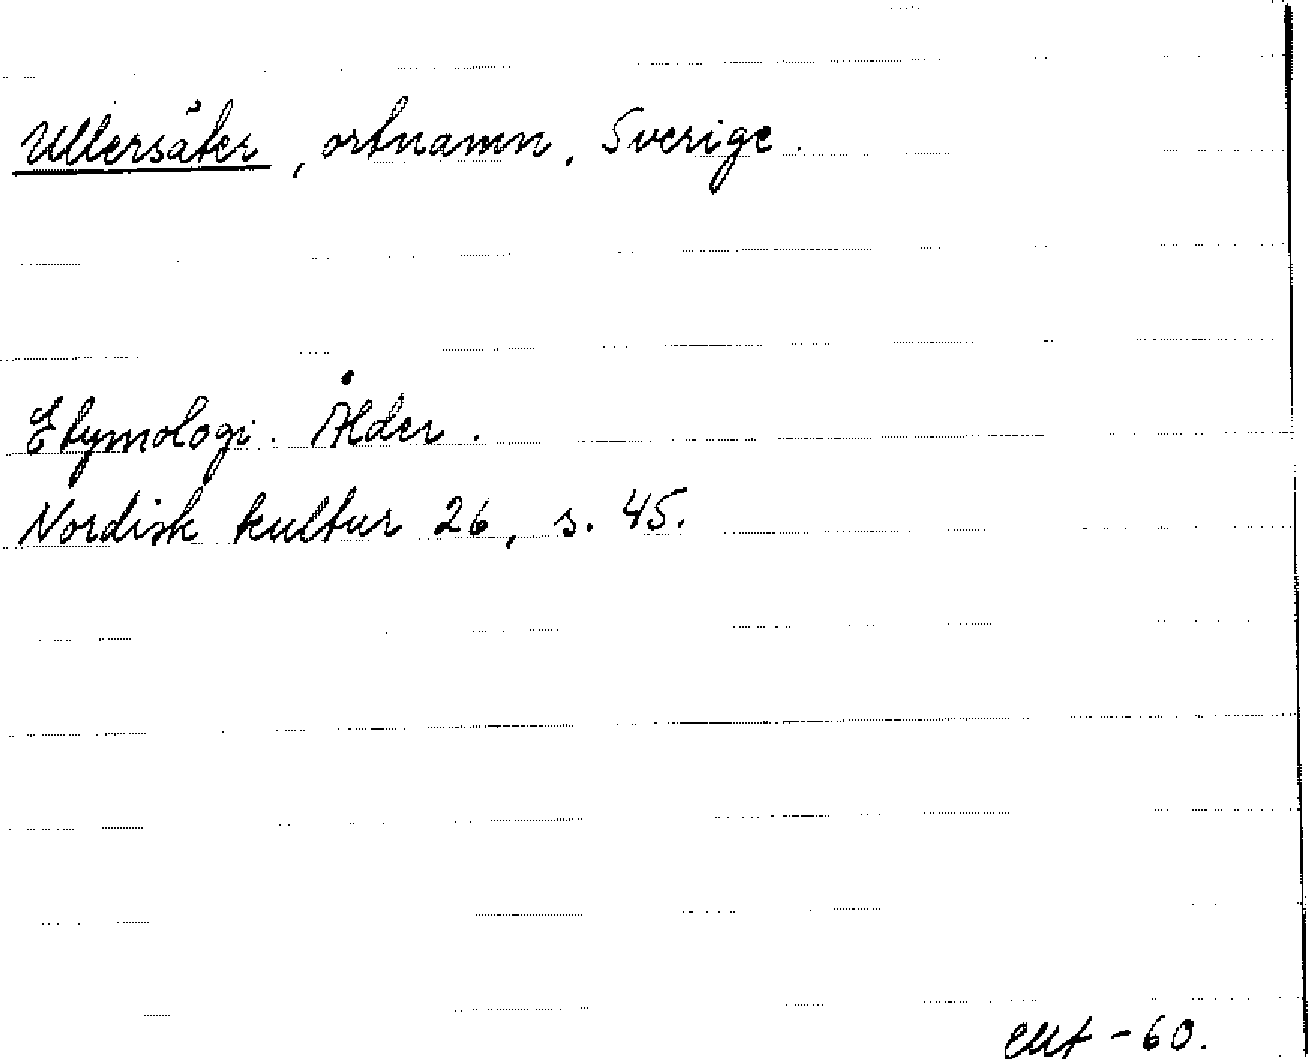 Ullersäter, ortnamn, Sverige.
Etymologi. Ålder.
Nordisk kultur 26, s. 45.
-60.